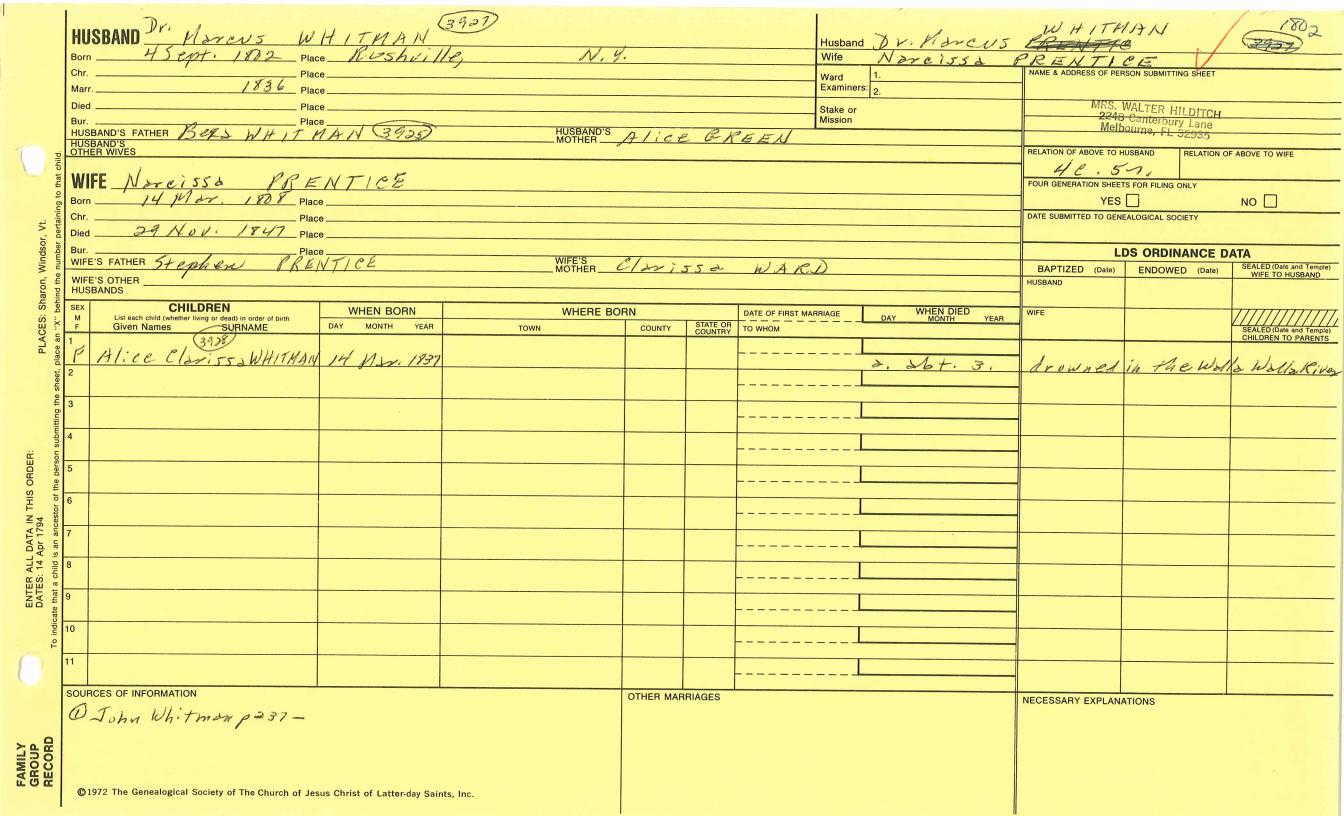 HUSBAND Dr. Marcus WHITMAN 3927
Born 4 Sept. 1802 Place Rushville, N.Y.
Chr. Place
Marr. 1836 Place
Died Place
Bur. Place
HUSBAND'S FATHER WHITMAN 3925 HUSBAND'S MOTHER Alice GREEN
HUSBAND'S OTHER WIVES
WIFE Narcissa PRENTICE
Born 14 Mar. 1808 Place
Chr. Place
Died 29 Nov. 1847 Place
Bur. Place
WIFE'S FATHER Stephen PRENTICE WIFE'S MOTHER Clarissa WARD
WIFE'S OTHER HUSBANDS
Husband Dr. Marcus PRENTIC WHITMAN
1802
3927
Wife Narcissa PRENTICE
Ward Examiners: 1.
2.
Stake or Mission
NAME & ADDRESS OF PERSON SUBMITTING SHEET
MRS. WALTER HILDITCH
2248 Canterbury Lane
Melbourne, FL 32935
RELATION OF ABOVE TO HUSBAND RELATION OF ABOVE TO WIFE
4c. 5r.
FOUR GENERATION SHEETS FOR FILING ONLY
YES NO
DATE SUBMITTED TO GENEALOGICAL SOCIETY
LDS ORDINANCE DATA
BAPTIZED (Date) ENDOWED (Date) SEALED (Date and Temple) WIFE TO HUSBAND
HUSBAND
WIFE
SEALED (Date and Temple) CHILDREN TO PARENTS
SEX M F
CHILDREN
List each child (whether living or dead) in order of birth
Given Names SURNAME
WHEN BORN
DAY MONTH YEAR
WHERE BORN
TOWN COUNTY STATE OR COUNTRY
DATE OF FIRST MARRIAGE
TO WHOM
WHEN DIED
DAY MONTH YEAR
3928
1 F Alice Clarissa WHITMAN 14 Mar. 1837 a. abt. 3. drowned in the Walla Walla River
2
3
4
5
6
7
8
9
10
11
SOURCES OF INFORMATION
① John Whitman p 237 —
OTHER MARRIAGES
NECESSARY EXPLANATIONS
©1972 The Genealogical Society of The Church of Jesus Christ of Latter-day Saints, Inc.
FAMILY GROUP RECORD
ENTER ALL DATA IN THIS ORDER:
DATES: 14 Apr 1794
PLACES: Sharon, Windsor, Vt.
To indicate that a child is an ancestor of the person submitting the sheet, place an "X" behind the number pertaining to that child.